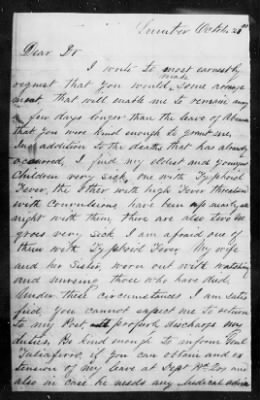 Sumter October 22nd
Dear Dr
I write to most earnestly
request that you would make some arrange
ment, that will enable me to remain away
a few days longer than the leave of Absence
that you were kind enough to grant me.
In addition to the deaths that has already
occurred, I find my eldest and youngest
Children very sick, one with Typhoid
Fever, the other with high Fever threatened
with Convulsions, have been up nearly a
night with them, there are also two
groes very sick I am afraid one of
them with Typhoid Fever. My wife
and her Sister, worn out with watching
and nursing those who have died,
Under these circumstances I am satis
fied, you cannot expect me to return
to my Post, properly discharge my
duties. Be kind enough to inform Genl
Taliaferro, if you can obtain an ex
tension of my leave at
also in case he needs any Medical advice